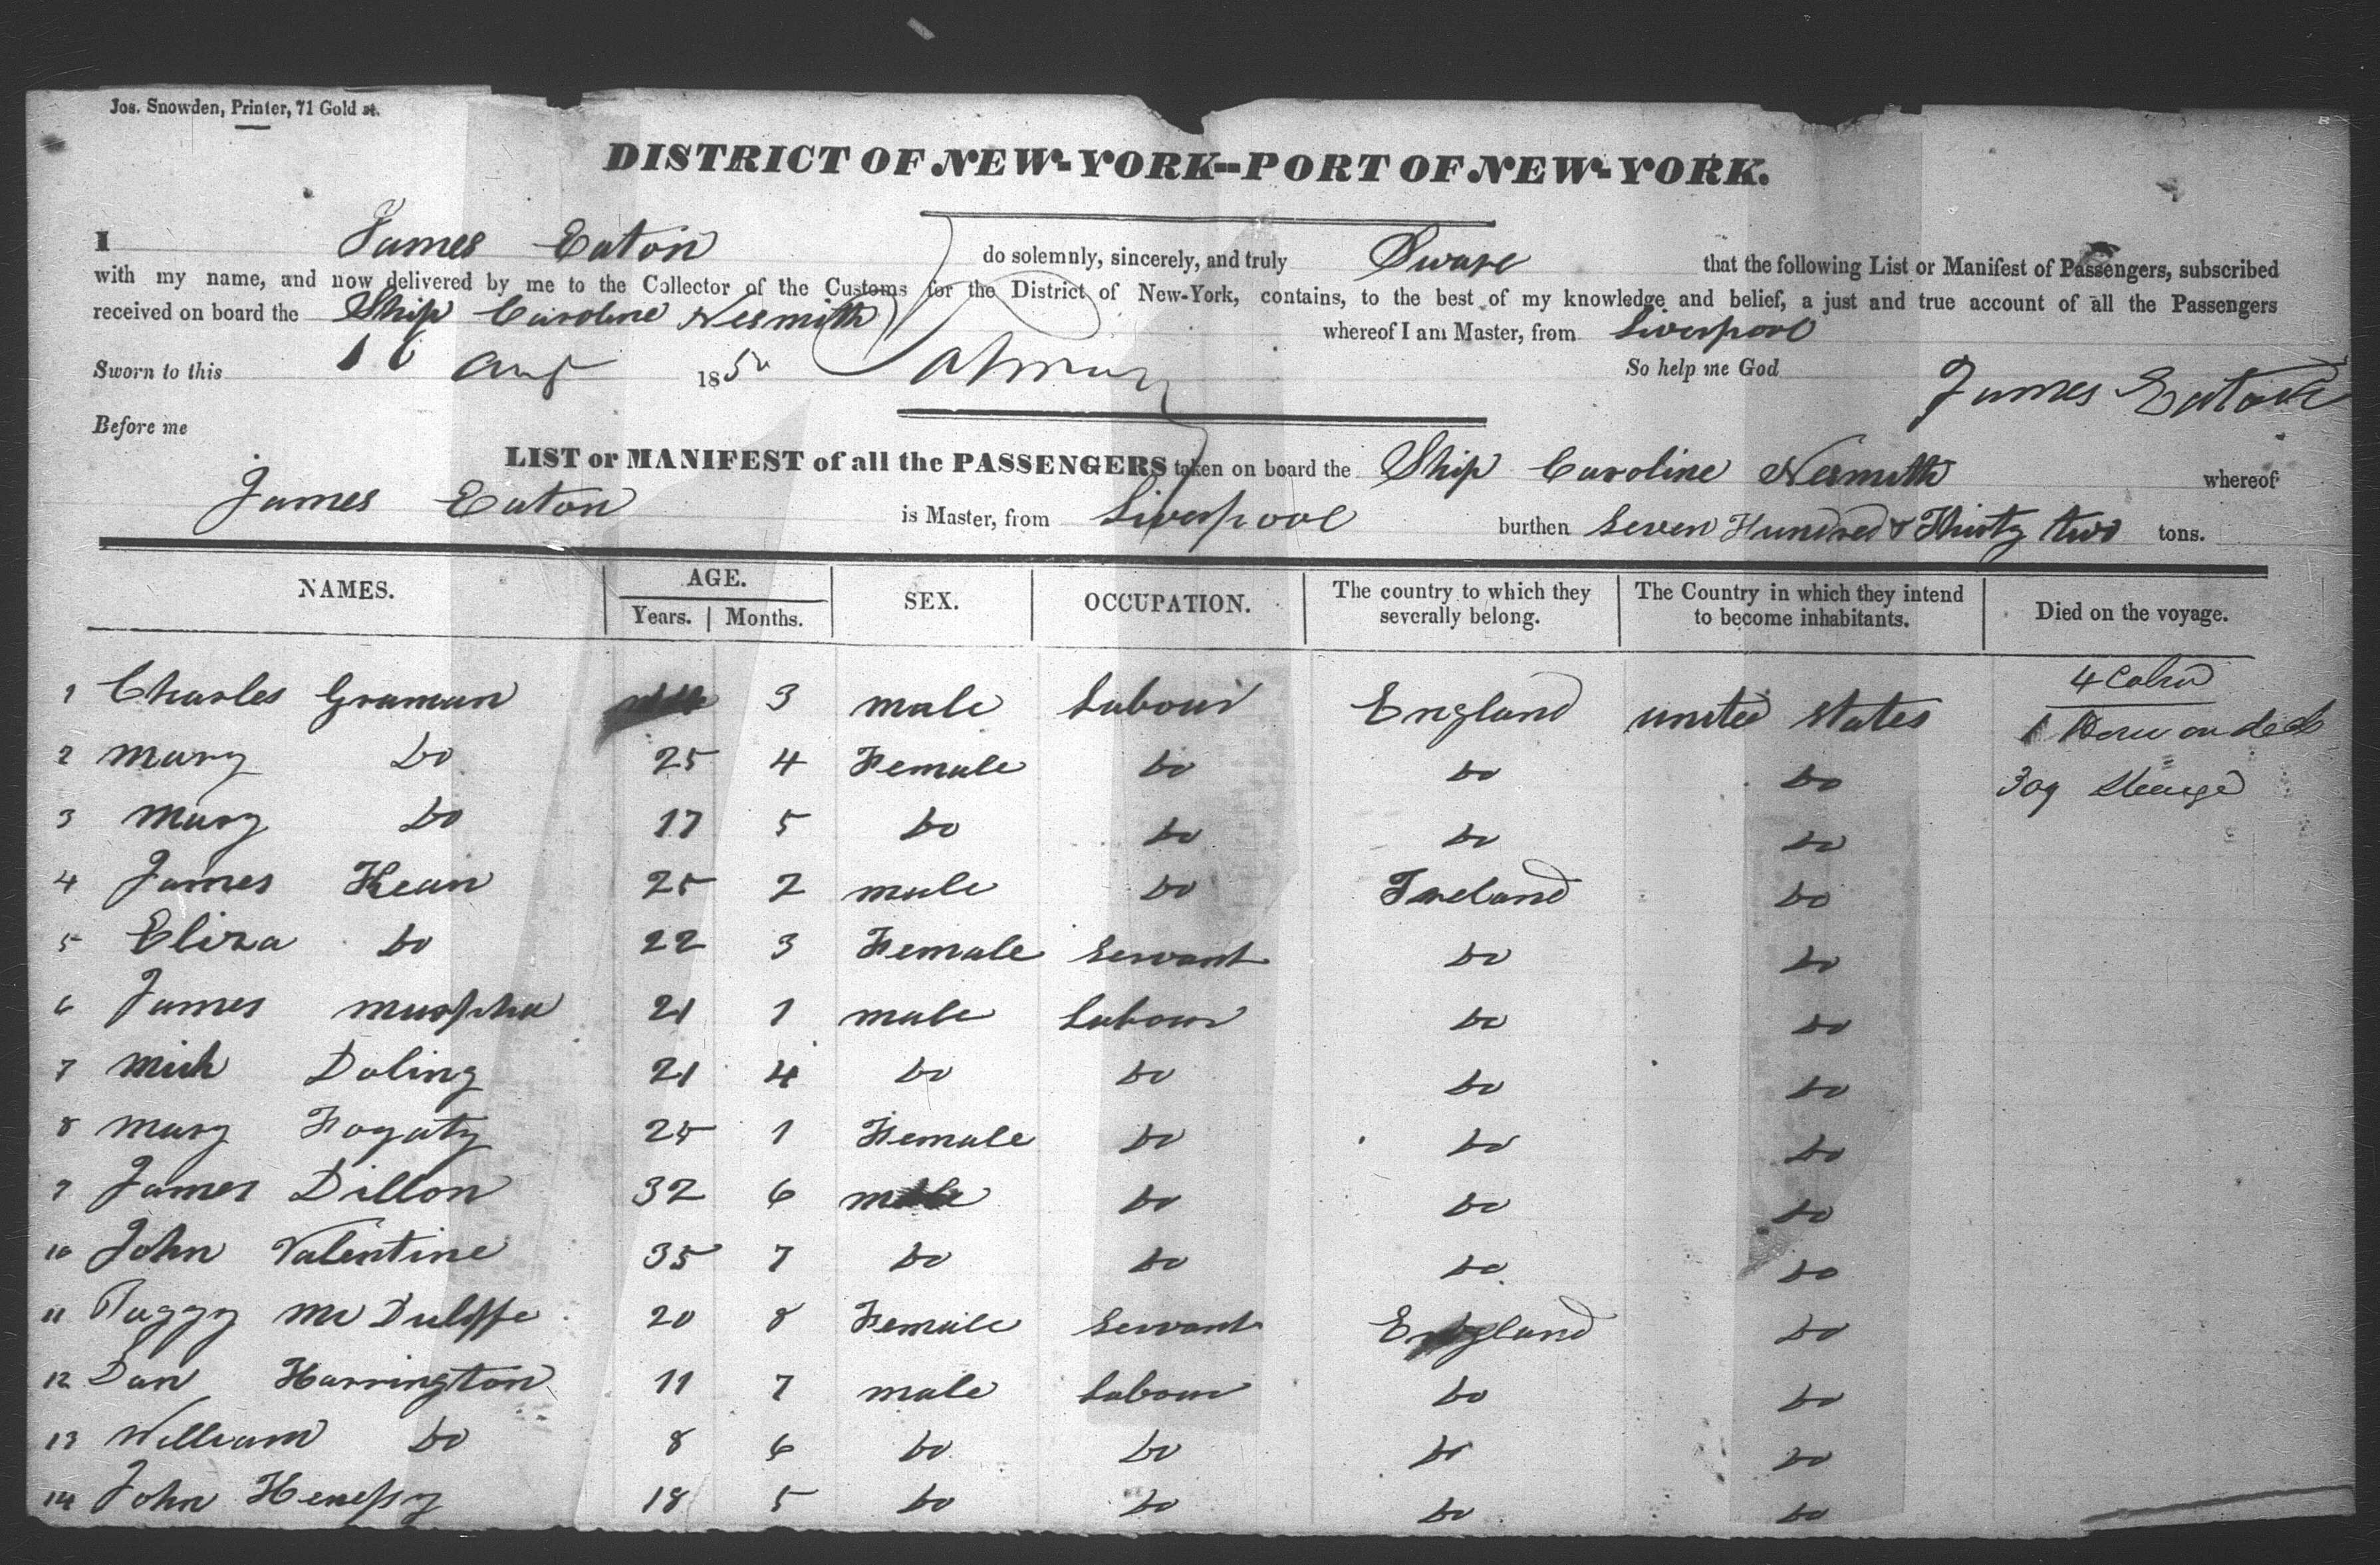 Jos. Snowden, Printer, 71 Gold st.
DISTRICT OF NEW-YORK--PORT OF NEW-YORK.
I James Eaton do solemnly, sincerely, and truly Sware that the following List or Manifest of Passengers, subscribed
with my name, and now delivered by me to the Collector of the Customs for the District of New-York, contains, to the best of my knowledge and belief, a just and true account of all the Passengers
received on board the Ship Caroline Nesmith whereof I am Master, from Liverpool
Sworn to this 16 Aug 1850 So help me God James Eaton
Before me
LIST or MANIFEST of all the PASSENGERS taken on board the Ship Caroline Nesmith whereof
James Eaton is Master, from Liverpool burthen Seven Hundred & Thirty two tons.
NAMES. AGE. Years. Months. SEX. OCCUPATION. The country to which they severally belong. The Country in which they intend to become inhabitants. Died on the voyage.
1 Charles Graman 3 male Labour England united States 4 Cabin
2 Mary Do 25 4 Female Do Do Do 1 Born on
3 Mary Do 17 5 Do Do Do Do 309
4 James Kean 25 2 male Do Ireland Do
5 Eliza Do 22 3 Female Servant Do Do
6 James 21 1 male Labour Do Do
7 Mich Doling 21 4 Do Do Do Do
8 Mary Fogaty 25 1 Female Do Do Do
9 James Dillon 32 6 male Do Do Do
10 John Valentine 35 7 Do Do Do Do
11 20 8 Female Servant England Do
12 Dan Harrington 11 7 male Labour Do Do
13 William Do 8 6 Do Do Do Do
14 John Henessy 18 5 Do Do Do Do